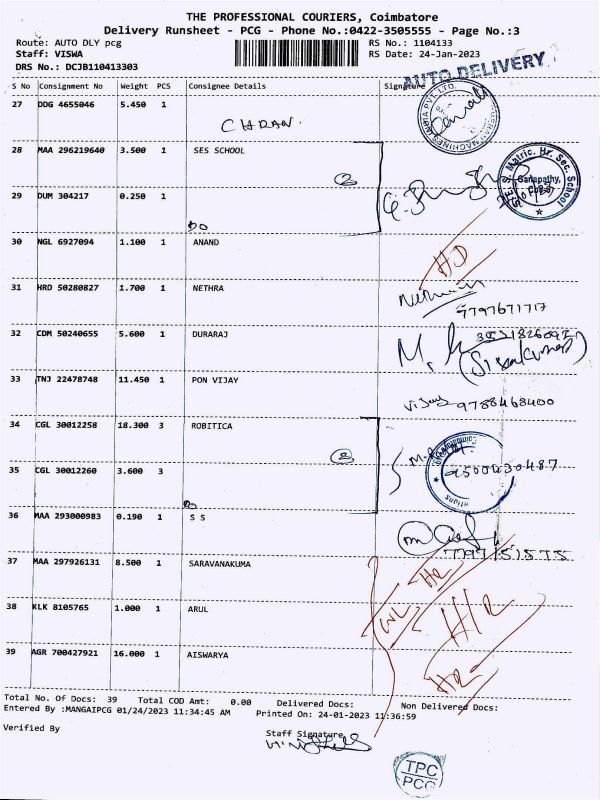 THE PROFESSIONAL COURIERS, Coimbatore
Delivery Runsheet - PCG - Phone No.:0422-3505555 - Page No.:3
Route: AUTO DLY pcg RS No.: 1104133
Staff: VISWA RS Date: 24-Jan-2023
DRS No.: DCJB110413303
AUTO DELIVERY
S No Consignment No Weight PCS Consignee Details Signature
27 DDG 4655046 5.450 1
28 MAA 296219640 3.500 1 SES SCHOOL
2
S.E.S. Matric. Hr. Sec. School
Ganapathy,
29 DUM 304217 0.250 1
DO
30 NGL 6927094 1.100 1 ANAND
31 HRD 50280827 1.700 1 NETHRA
32 CDM 50240655 5.600 1 DURARAJ
(Sivakumar)
33 TNJ 22478748 11.450 1 PON VIJAY
Vijay 9788468400
34 CGL 30012258 18.300 3 ROBITICA
2
35 CGL 30012260 3.600 3
9500430487
36 MAA 293000983 0.190 1 S S
37 MAA 297926131 8.500 1 SARAVANAKUMA
38 KLK 8105765 1.000 1 ARUL
39 AGR 700427921 16.000 1 AISWARYA
Total No. Of Docs: 39 Total COD Amt: 0.00 Delivered Docs: Non Delivered Docs:
Entered By :MANGAIPCG 01/24/2023 11:34:45 AM Printed On: 24-01-2023 11:36:59
Verified By Staff Signature
TPC
PCG